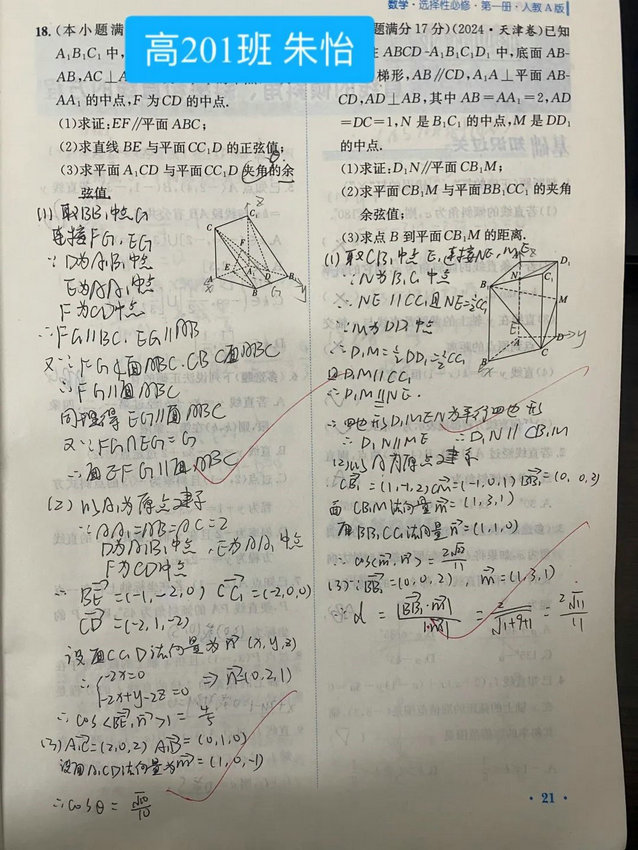 数学·选择性必修·第一册·人教A版
高201班 朱怡
18.(本小题满
A₁B₁C₁中,
AB,AC⊥A
AA₁的中点,F为CD的中点.
(1)求证:EF//平面ABC;
(2)求直线BE与平面CC₁D的正弦值;
(3)求平面A₁CD与平面CC₁D夹角的余
弦值.
(1) 取BB₁中点G
连接FG,EG
∵D为A₁B₁中点
E为AA₁中点
F为CD中点
∴FG//BC,EG//AB
又∵FG⊄面ABC,CB⊂面ABC
∴FG//面ABC
同理得EG//面ABC
又∵FG∩EG=G
∴面EFG//面ABC
(2) 以A₁为原点建系
∵AA₁=AB=AC=2
D为A₁B₁中点,E为AA₁中点
F为CD中点
∴BE=(-1,-2,0) CC₁=(-2,0,0)
CD=(-2,1,-2)
设面CC₁D法向量为n(x,y,z)
∴{-2x=0
-2x+y-2z=0 ⇒n(0,2,1)
∴cos<BE,n>|=4/5
(3) A₁C=(2,0,2) A₁D=(0,1,0)
设面A₁CD法向量为m=(1,0,-1)
∴cosθ=√10/10
题满分17分)(2024·天津卷)已知
柱ABCD-A₁B₁C₁D₁中,底面AB-
梯形,AB//CD,A₁A⊥平面AB-
CD,AD⊥AB,其中AB=AA₁=2,AD
=DC=1,N是B₁C₁的中点,M是DD₁
的中点.
(1)求证:D₁N//平面CB₁M;
(2)求平面CB₁M与平面BB₁CC₁的夹角
余弦值;
(3)求点B到平面CB₁M的距离.
(1) 取CB₁中点E,连接NE,ME
∵N为B₁C₁中点
∴NE//CC₁且NE=½CC₁
∵M为DD₁中点
∴D₁M=½DD₁=½CC₁
且D₁M//CC₁
∴D₁M//NE.
∴四边形D₁MEN为平行四边形
∴D₁N//ME ∴D₁N//CB₁M
(2)以A为原点建系
CB₁=(1,-1,2) CM=(-1,0,1) BB₁=(0,0,2)
面CB₁M法向量m=(1,3,1)
面BB₁CC₁法向量n=(1,1,0)
∴cos<m,n>=2√22/11
(3)∵BB₁=(0,0,2),m=(1,3,1)
∴d=|BB₁·m|/|m|=2/√1+9+1=2√11/11
·21·